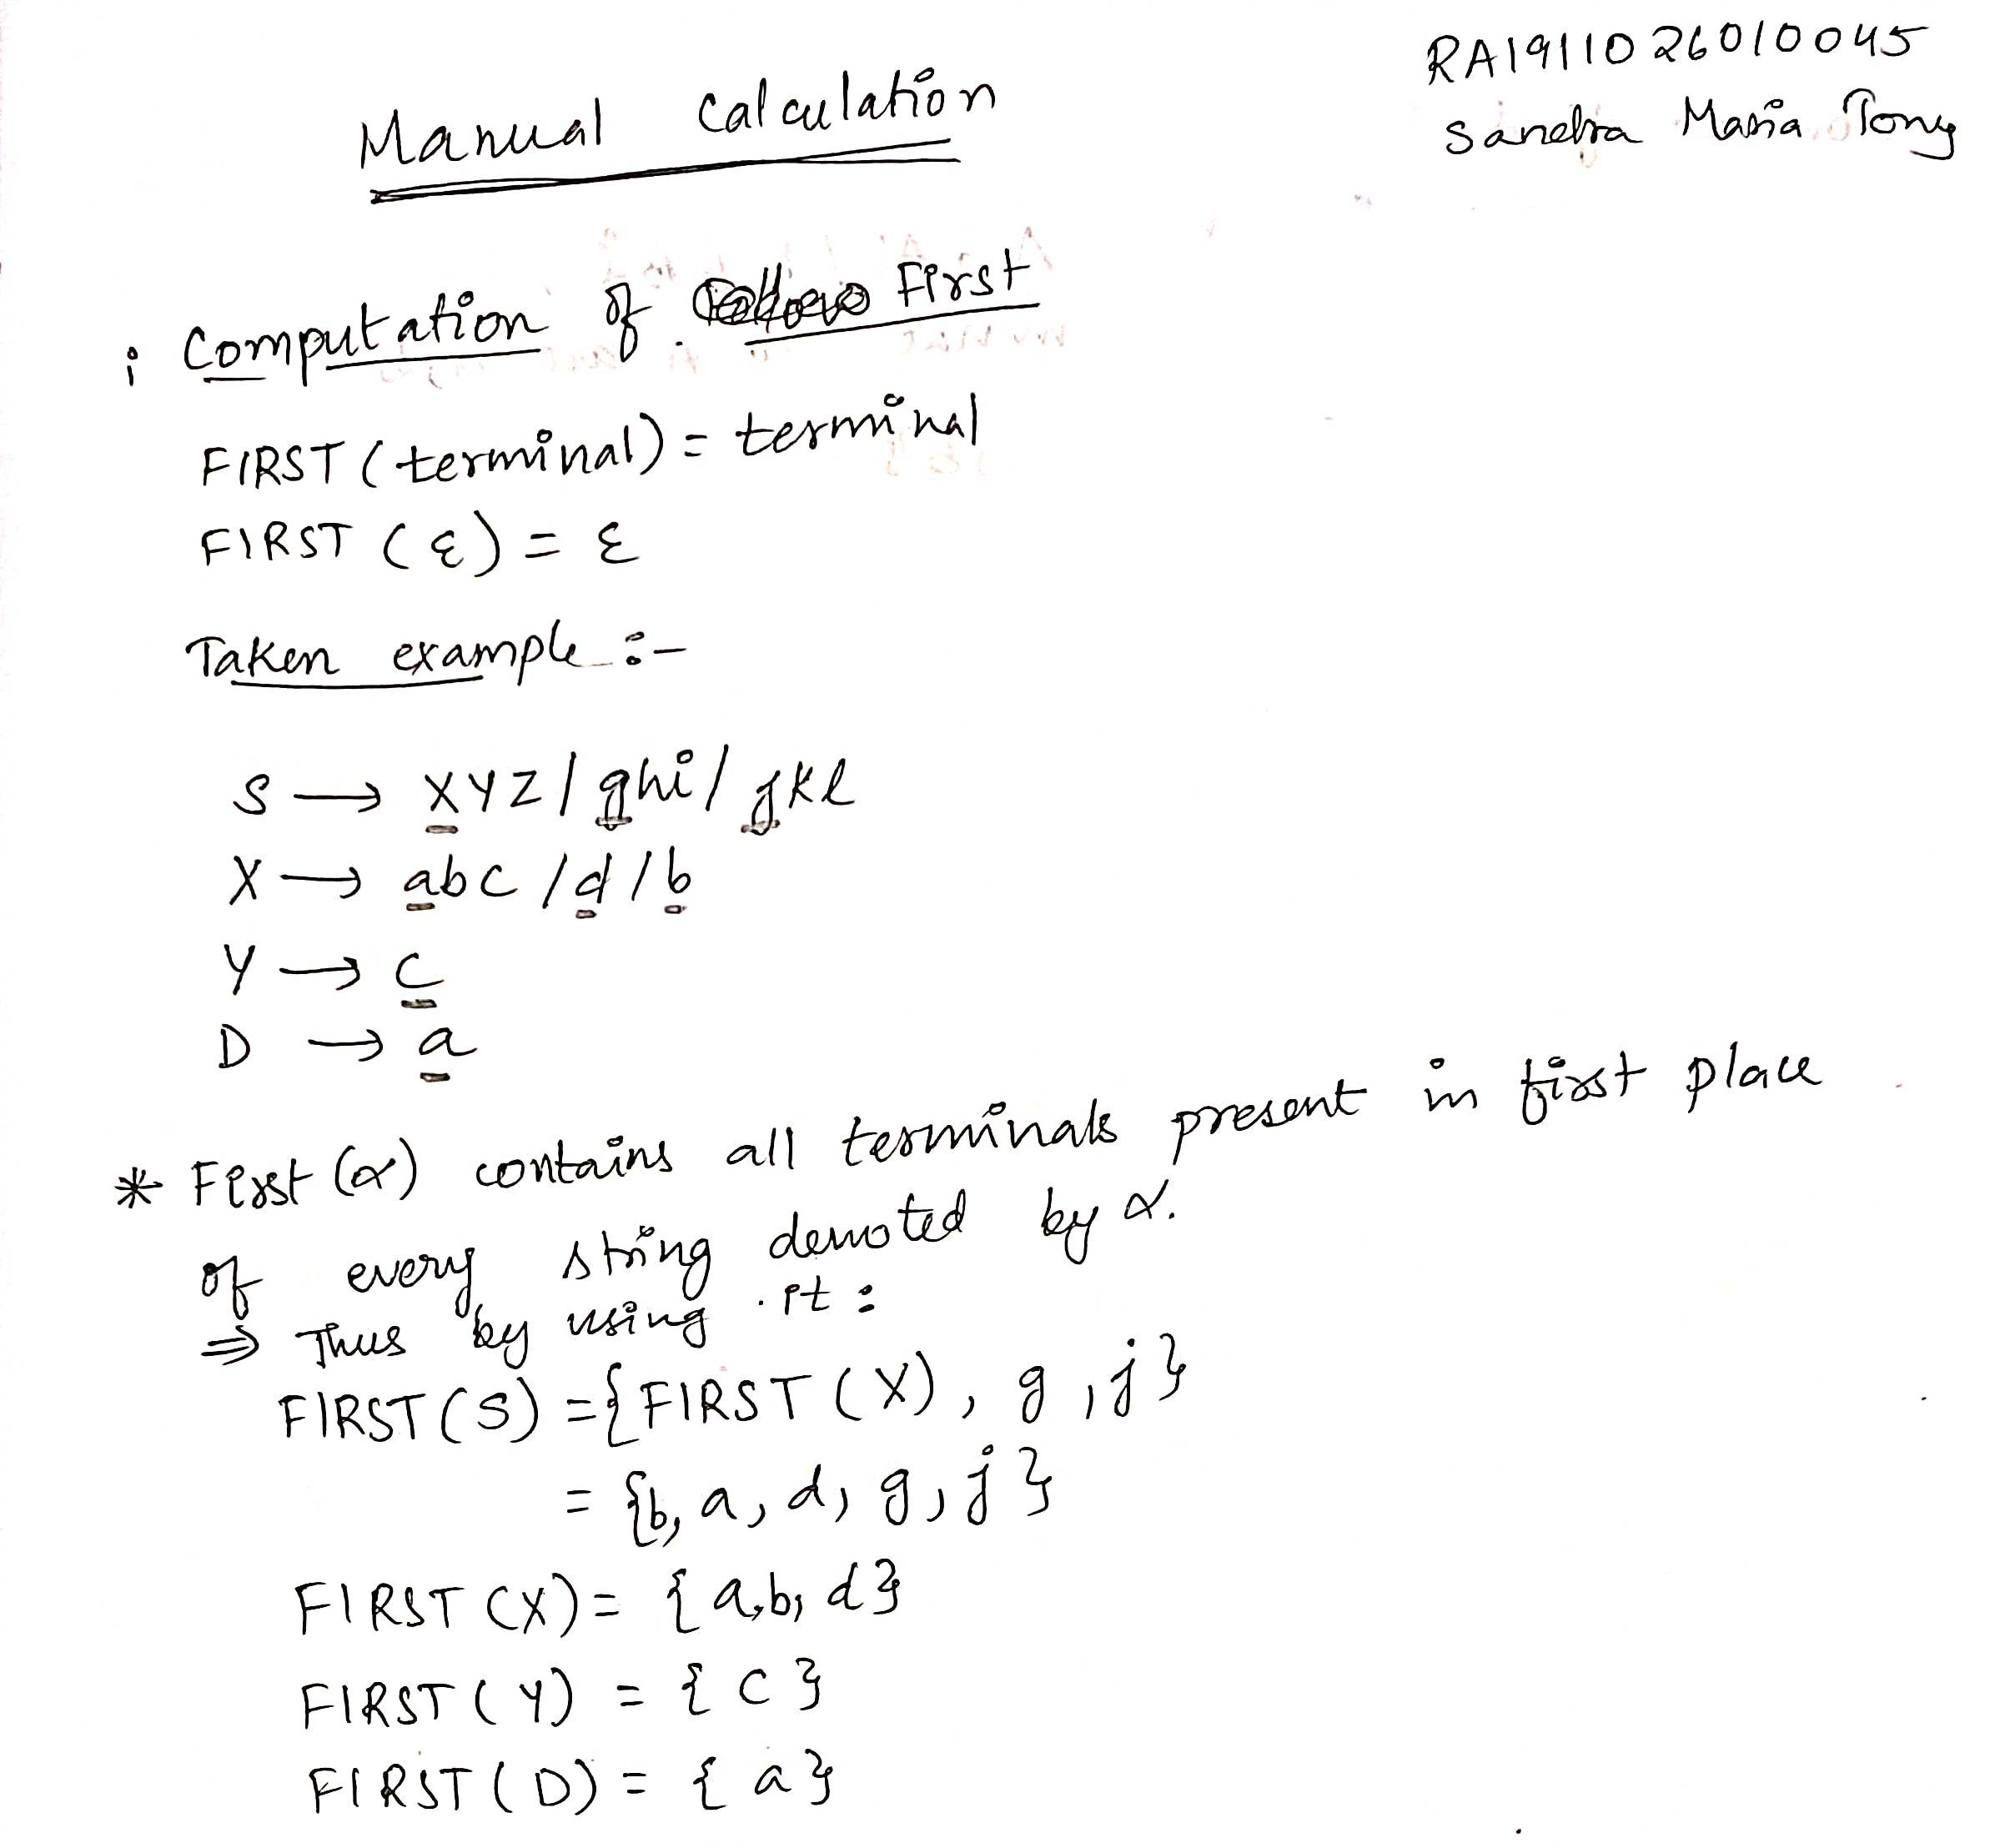 RA1911026010045
Sandra Maria Tony
Manual Calculation
i Computation of First
FIRST (terminal) = terminal
FIRST (ε) = ε
Taken example :-
S → XYZ / ghi / jkl
X → abc / d / b
Y → c
D → a
* First (α) contains all terminals present in first place
of every string denoted by α.
⇒ Thus by using it :
FIRST (S) = {FIRST (X), g, j}
= {b, a, d, g, j}
FIRST (X) = {a, b, d}
FIRST (Y) = {c}
FIRST (D) = {a}